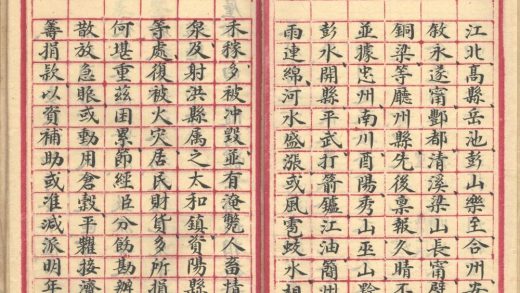 江北高縣岳池彭山樂至合州安
敘永遂甯酆都清溪梁山長甯壁
銅梁等廳州縣先後稟報久晴不
並據忠州南川酉陽秀山巫山黔
彭水開縣平武打箭鑪江油簡州
雨連綿河水盛漲或風雹蛟水相
禾稼多被沖毀並有淹斃人畜情
泉及射洪縣属之太和鎮資陽縣
等處復被火灾居民財貨多所損
何堪重茲困累節經臣分飭勘辦
散放急賑或動用倉穀平糶接濟
籌捐欵以資補助或准減派明年